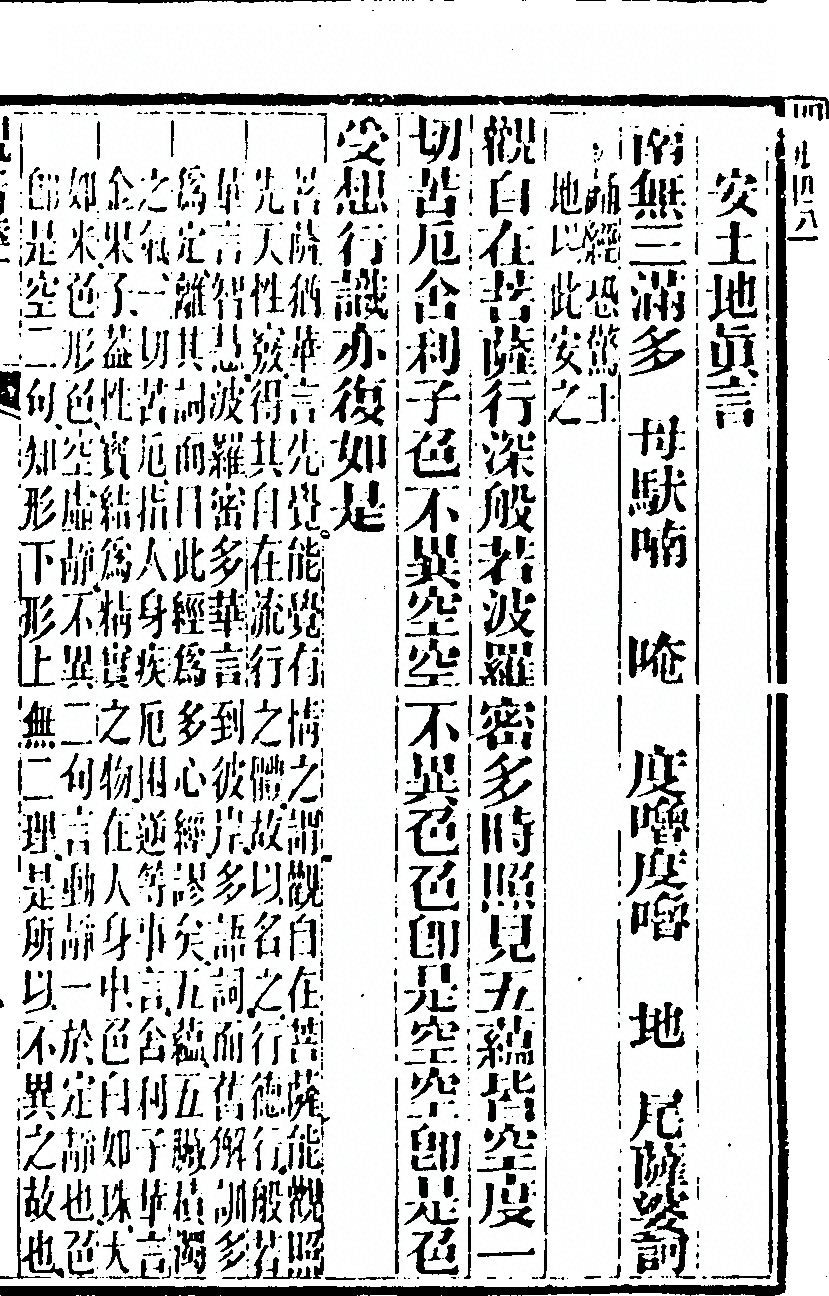 安土地眞言
南無三滿多　母馱喃　唵　度嚕度嚕　地　尾薩婆訶
誦經恐驚土
地以此安之
觀自在菩薩行深般若波羅密多時照見五蘊皆空度一
切苦厄舍利子色不異空空不異色色卽是空空卽是色
受想行識亦復如是
菩薩猶華言先覺能覺有情之謂觀自在菩薩能觀照
先天性竅得其自在流行之體故以名之行德行般若
華言智慧波羅密多華言到彼岸多語詞而舊解訓多
爲定離其詞而曰此經爲多心經謬矣五蘊五臟積濁
之氣一切苦厄指人身疾厄困逆等事言舍利子華言
金果子蓋性實結爲精實之物在人身中色白如珠大
如米色形色空虛靜不異二句言動靜一於定靜也色
卽是空二句知形下形上無二理是所以不異之故也